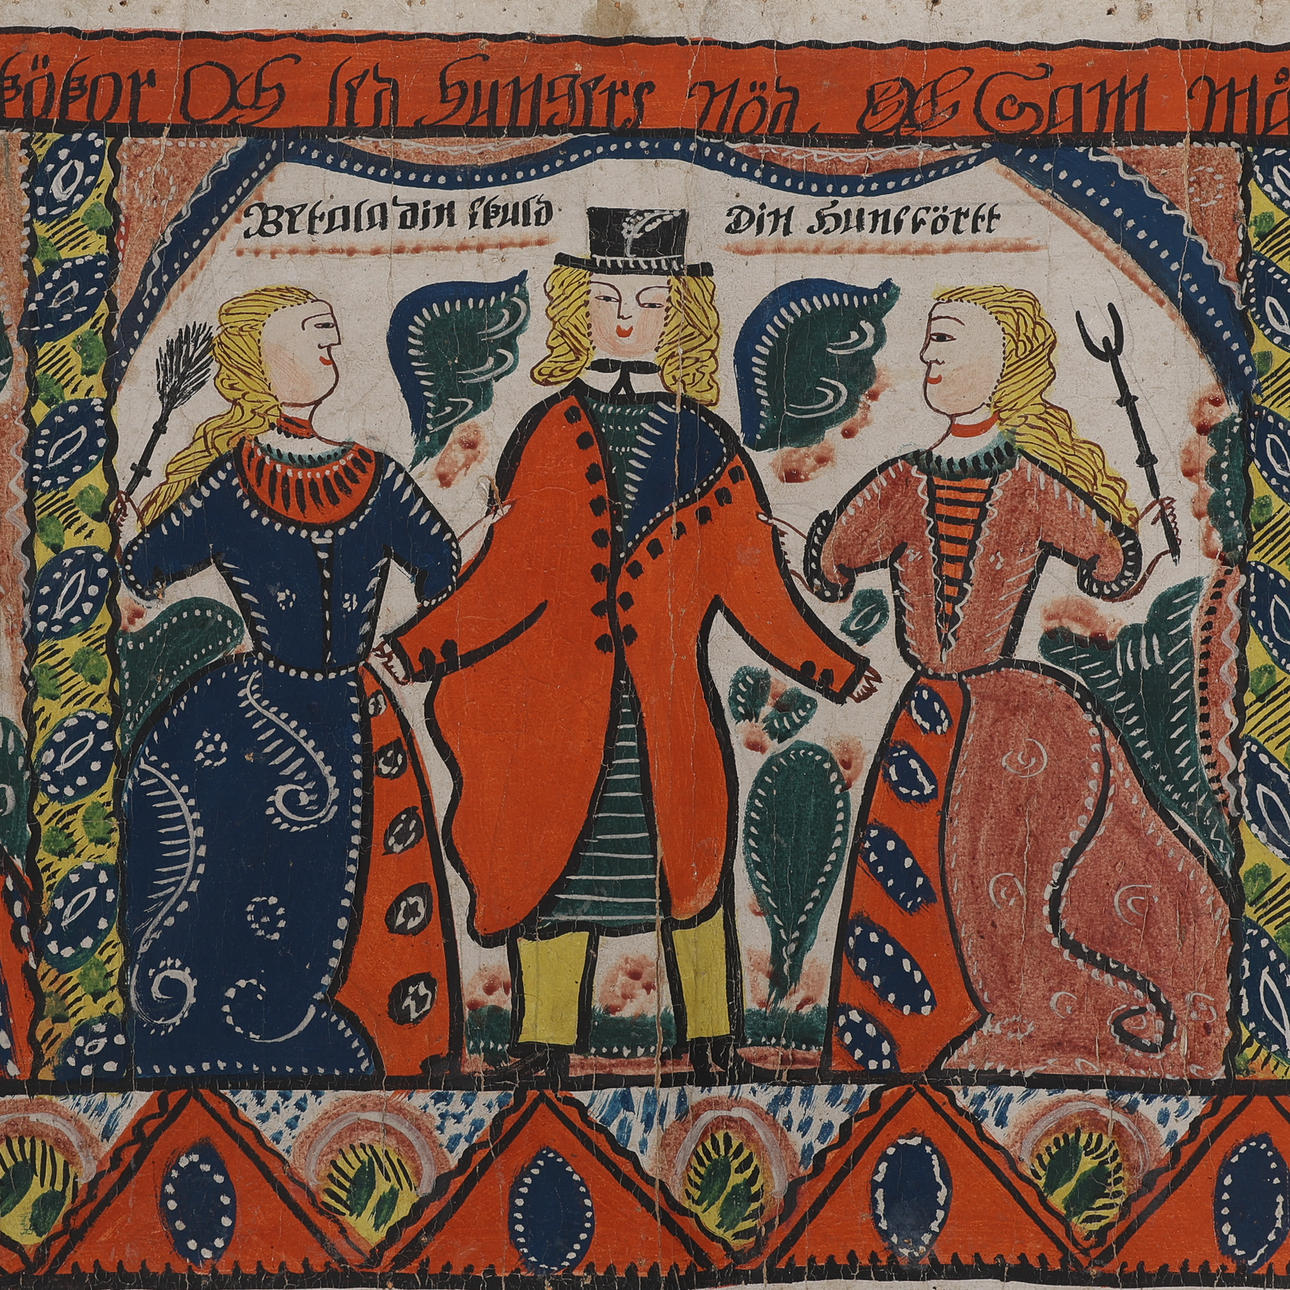 skökor Och led hungers nöd. Och Sam må
Betala din skuld
Din Hunsförtt